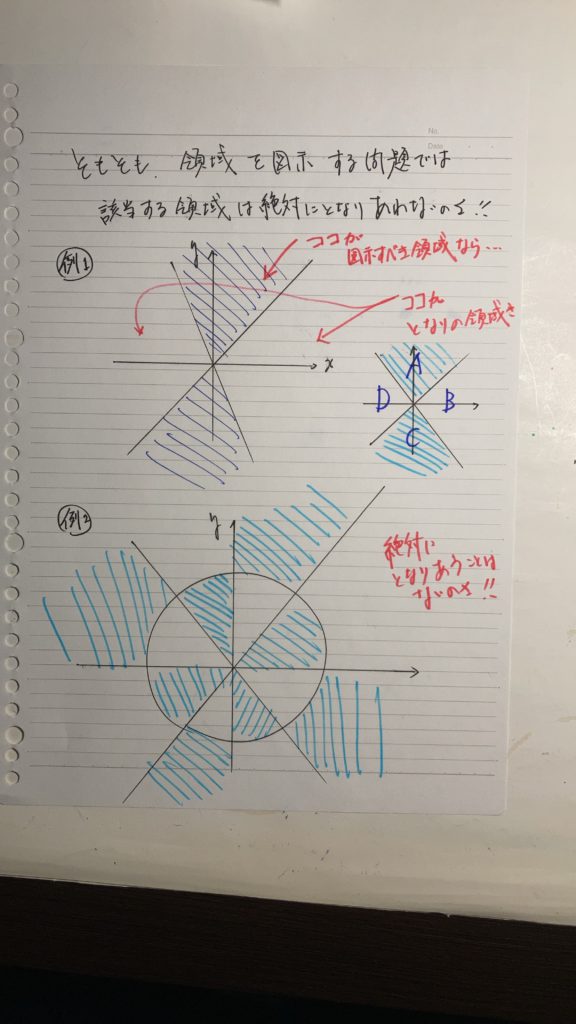 No.
Date
そもそも、領域を図示する問題では
該当する領域は絶対にとなりあわないのさ!!
例1
y
ココが
図示すべき領域なら…
ココは
となりの領域さ
x
A
D
B
C
例2
y
絶対に
となりあうことは
ないのさ!!